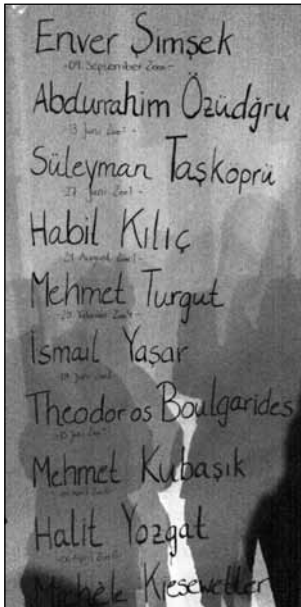 Enver Şimşek
-09. September 2000-
Abdurrahim Özüdğru
-13 Juni 2001-
Süleyman Taşköprü
-27. Juni 2001-
Habil Kılıç
August 2001-
Mehmet Turgut
Februar 2004-
İsmail Yaşar
Juni
Theodoros Boulgarides
Juni
Mehmet Kubaşık
April
Halit Yozgat
April
Michèle Kiesewetter